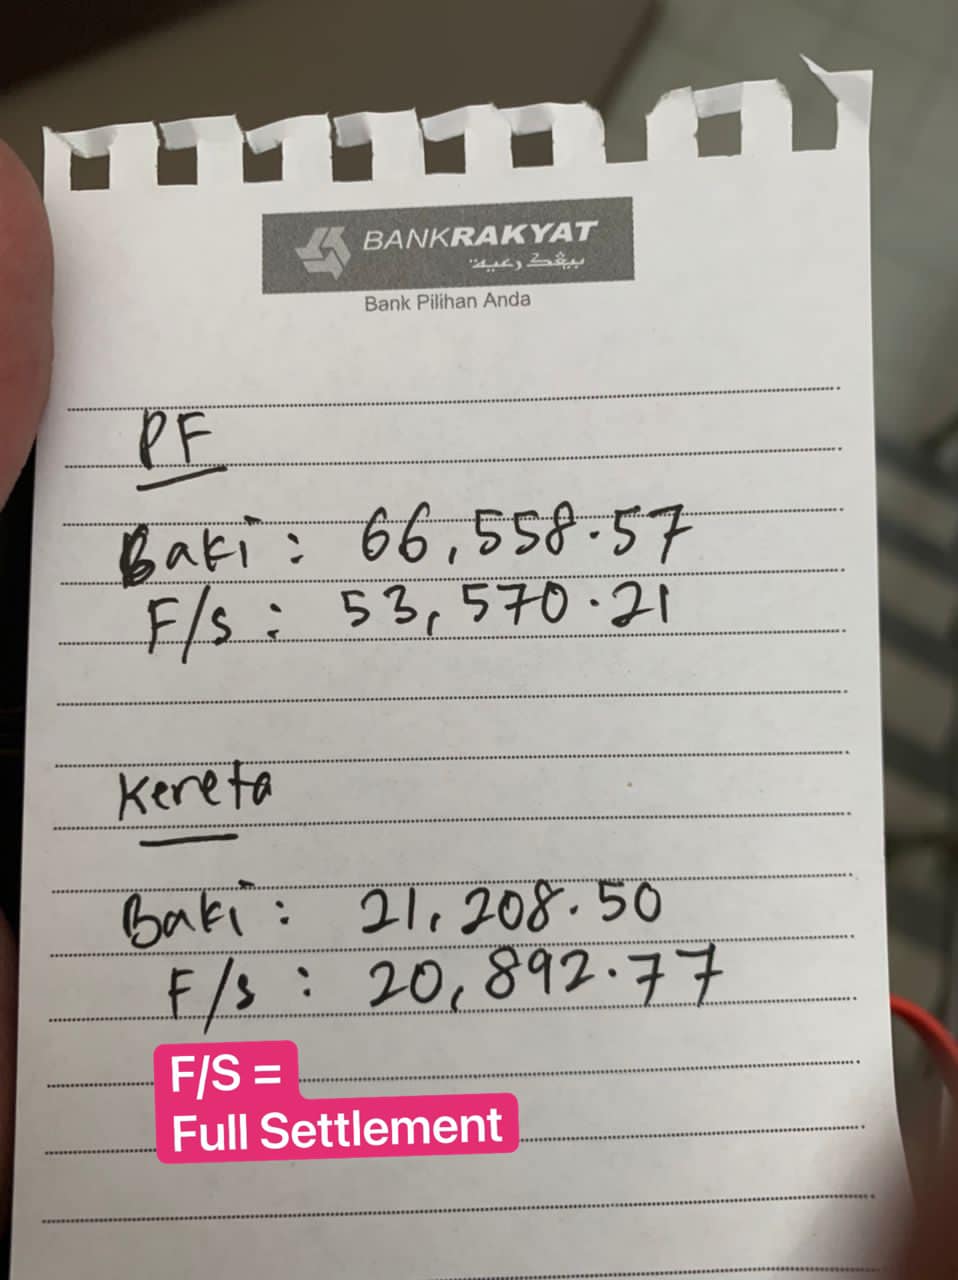 BANKRAKYAT
بيڠك رعية
Bank Pilihan Anda
PF
Baki : 66,558.57
F/s : 53,570.21
Kereta
Baki : 21,208.50
F/s : 20,892.77
F/S =
Full Settlement